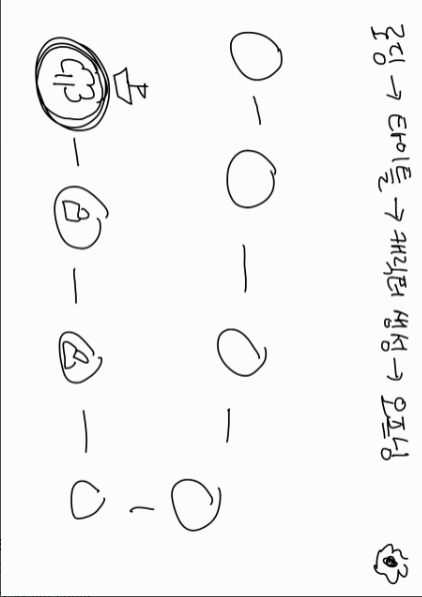 로딩 → 타이틀 → 캐릭터 생성 → 오프닝